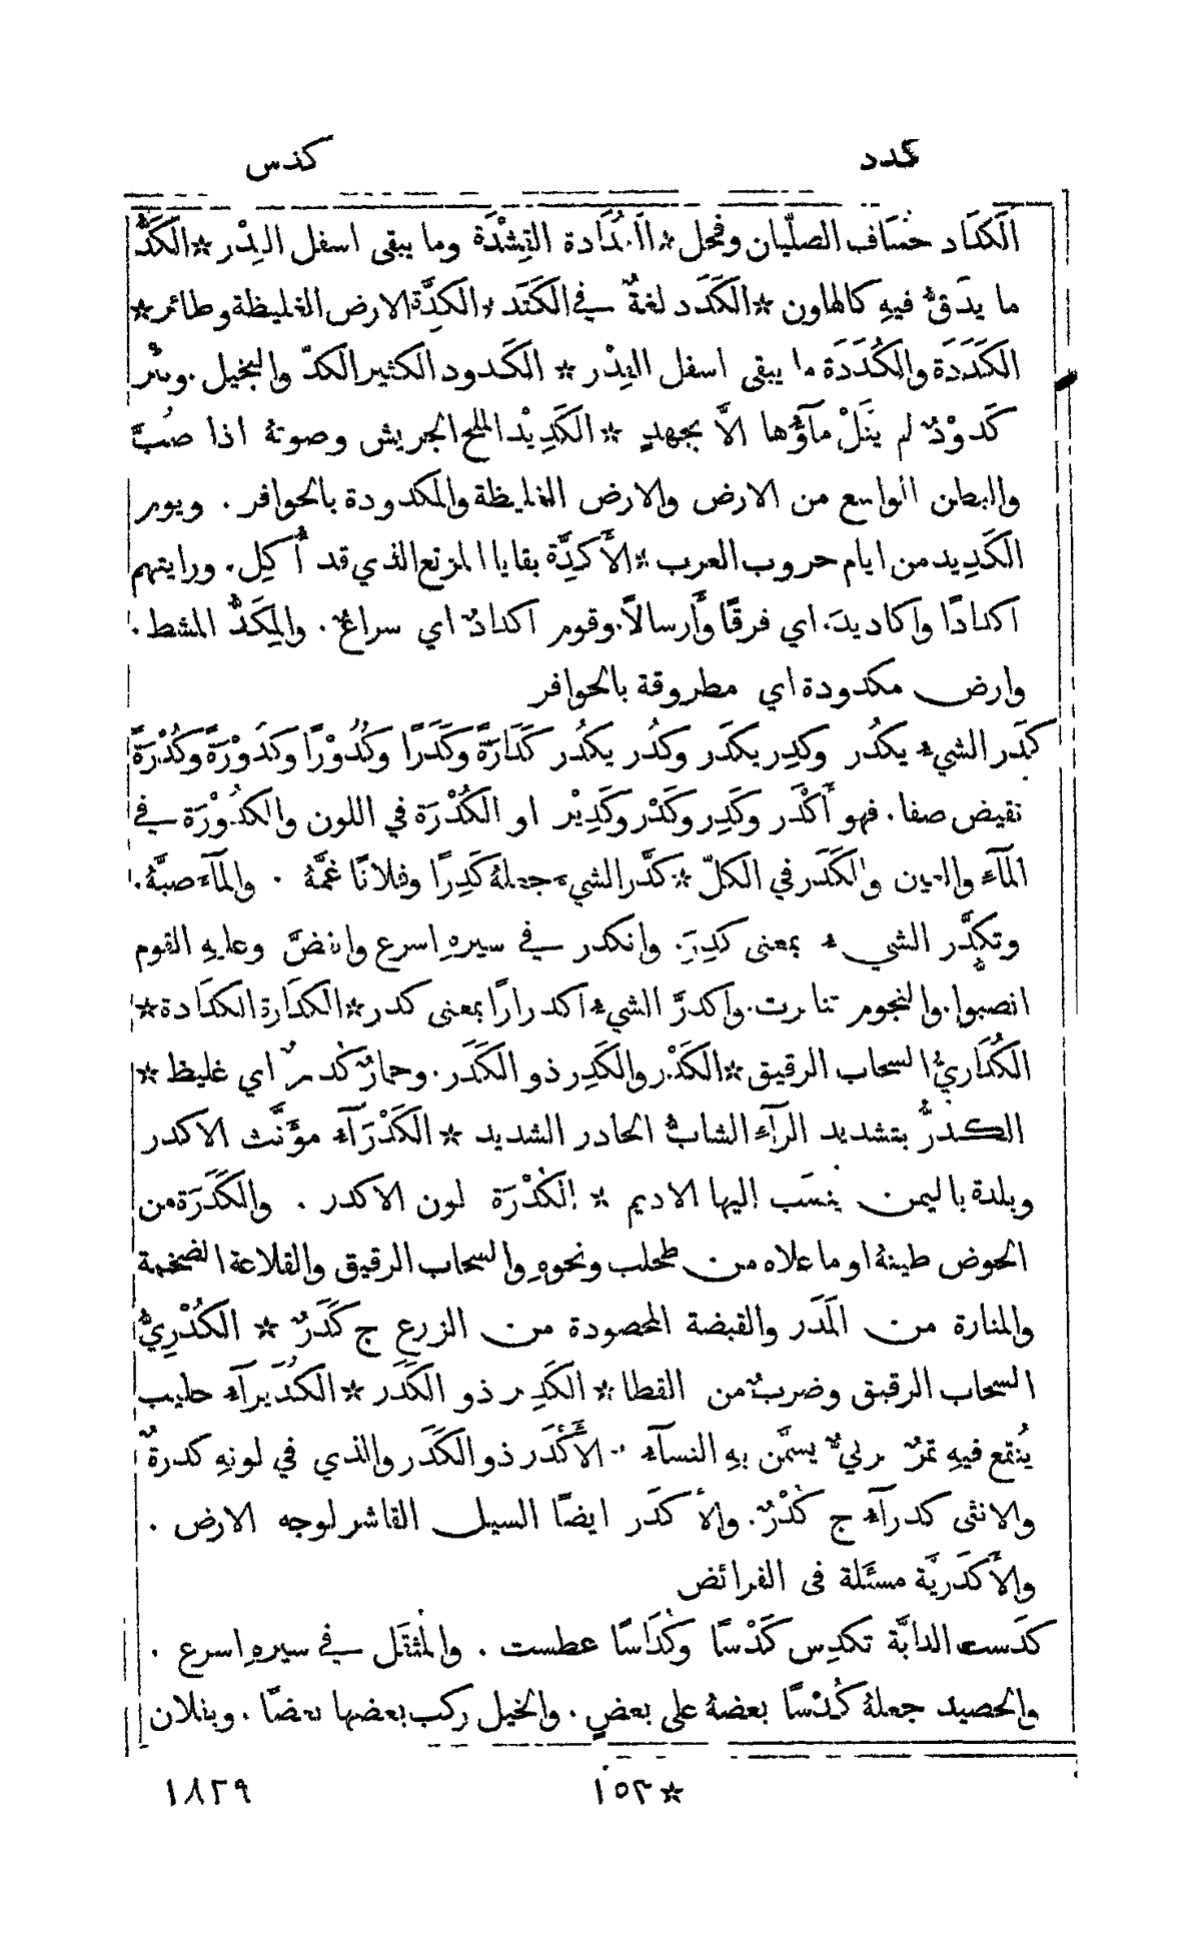 كدد كدس
الكَدَاد حُسَاف الصلّيان وفحل * الكُدَادة القِشْدَة وما يبقى اسفل القِدْر * الكَدُّ
ما يدَقُّ فيهِ كالهاون * الكَدَد لغةٌ في الكَتَد * الكَدِّة الارض الغليظة وطائر *
الكَدَدَة والكُدَدَة ما يبقى اسفل القِدْر * الكَدود الكثير الكدّ والبخيل . وبئر
كَدوْدٌ لم يُنَلْ مآؤُها الَّا بجهدٍ * الكَدِيْد الملح الجريش وصوتهُ اذا صُبَّ
والبطن الواسع من الارض والارض الغليظة والمكدودة بالحوافر . ويوم
الكَدِيد من ايام حروب العرب * الأَكدَّة بقايا المرتع الذي قد أُكِل . ورايتهم
اكدادًا واكاديدَ . اي فرقًا وأَرسالاً . وقوم اكدادٌ اي سراعٌ . والمِكَدُّ المشط .
وارض مكدودة اي مطروقة بالحوافر
كدَر الشيء يكدُر وكدِر يكدَر وكدُر يكدُر كَدَارَةً وكَدَرًا وكُدُوْرًا وكدُوْرَةً وكُدْرَةً
نقيض صفا . فهو أَكْدَر وكَدِر وكَدْر وكَدِيْر او الكُدْرَة في اللون والكدُوْرَة في
المآء والعين والكَدَر في الكلّ * كدَّر الشيء جعلهُ كَدِرًا وفلانًا غمَّهُ . والمآء صبَّهُ .
وتكدَّر الشيء بمعنى كدِرَ . وانكدر في سيرهِ اسرع وانقضَّ وعليهِ القوم
انصبوا . والنجوم تناثرت . واكدرَّ الشيء اكدرارًا بمعنى كدر * الكدَارة الكدَادة *
الكُدَاريُّ السحاب الرقيق * الكَدْر والكَدِر ذو الكَدَر . وحمارٌ كُدرٌ اي غليظ *
الكدُرُّ بتشديد الرآء الشابُّ الحادر الشديد * الكَدْرَآء مؤَنَّث الاكدر
وبلدة باليمن ينسَب اليها الاديم * الكُدْرَة لون الاكدر . والكَدَرَة من
الحوض طينهُ او ما علاه من طحلب ونحوهِ والسحاب الرقيق والقلاعة الضخمة
والمنارة من المَدَر والقبضة المحصودة من الزرع ج كَدَرٌ * الكُدْرِيُّ
السحاب الرقيق وضربٌ من القطا * الكَدِير ذو الكَدَر * الكُدَيرآء حليب
يُنقع فيهِ تمرٌ برنيٌّ يسمَّن بهِ النسآء * الأَكْدَر ذو الكَدَر والذي في لونهِ كدرةٌ
والانثى كدرآء ج كُدْرٌ . والأَكدَر ايضًا السيل القاشر لوجه الارض .
والأَكدَريَّة مسئَلة في الفرائض
كدَست الدابَّة تكدِس كَدْسًا وكُدَاسًا عطست . والمثقَل في سيرهِ اسرع .
والحصيد جعلهُ كُدْسًا بعضهُ على بعضٍ . والخيل ركب بعضها بعضًا . وبفلان
* ١٥٢ ١٨٢٩